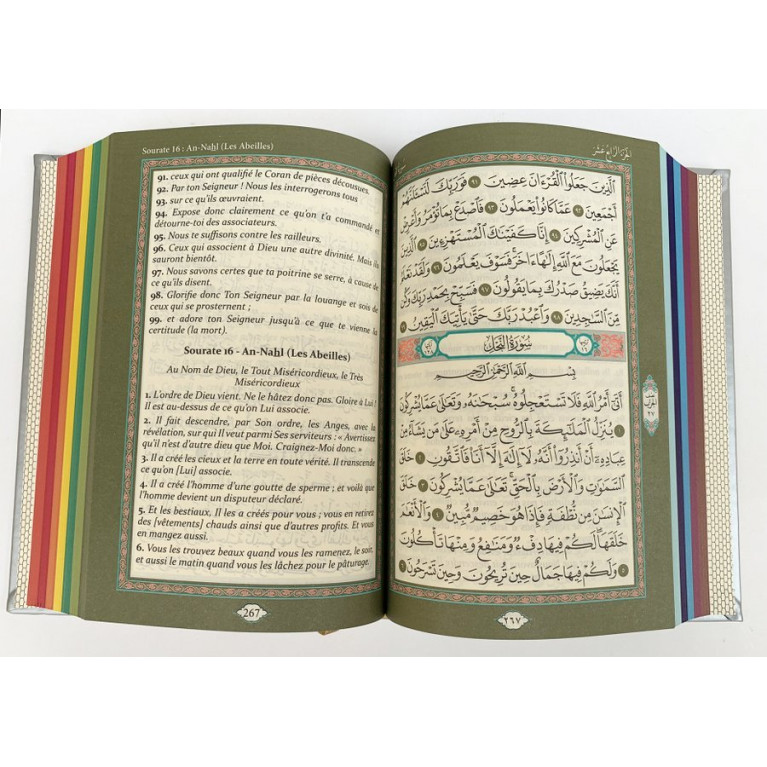 Sourate 16 : An-Nahl (Les Abeilles)
91. ceux qui ont qualifié le Coran de pièces décousues.
92. Par ton Seigneur ! Nous les interrogerons tous
93. sur ce qu'ils œuvraient.
94. Expose donc clairement ce qu'on t'a commandé et
détourne-toi des associateurs.
95. Nous te suffisons contre les railleurs.
96. Ceux qui associent à Dieu une autre divinité. Mais ils
sauront bientôt.
97. Nous savons certes que ta poitrine se serre, à cause de
ce qu'ils disent.
98. Glorifie donc Ton Seigneur par la louange et sois de
ceux qui se prosternent ;
99. et adore ton Seigneur jusqu'à ce que te vienne la
certitude (la mort).
Sourate 16 - An-Nahl (Les Abeilles)
Au Nom de Dieu, le Tout Miséricordieux, le Très
Miséricordieux
1. L'ordre de Dieu vient. Ne le hâtez donc pas. Gloire à Lui !
Il est au-dessus de ce qu'on Lui associe.
2. Il fait descendre, par Son ordre, les Anges, avec la
révélation, sur qui Il veut parmi Ses serviteurs : « Avertissez
qu'il n'est d'autre dieu que Moi. Craignez-Moi donc. »
3. Il a créé les cieux et la terre en toute vérité. Il transcende
ce qu'on [Lui] associe.
4. Il a créé l'homme d'une goutte de sperme ; et voilà que
l'homme devient un disputeur déclaré.
5. Et les bestiaux, Il les a créés pour vous ; vous en retirez
des [vêtements] chauds ainsi que d'autres profits. Et vous
en mangez aussi.
6. Vous les trouvez beaux quand vous les ramenez, le soir,
et aussi le matin quand vous les lâchez pour le pâturage.
267
الجزء الرابع عشر
ٱلَّذِينَ جَعَلُوا۟ ٱلْقُرْءَانَ عِضِينَ ٩١ فَوَرَبِّكَ لَنَسْـَٔلَنَّهُمْ
أَجْمَعِينَ ٩٢ عَمَّا كَانُوا۟ يَعْمَلُونَ ٩٣ فَٱصْدَعْ بِمَا تُؤْمَرُ وَأَعْرِضْ
عَنِ ٱلْمُشْرِكِينَ ٩٤ إِنَّا كَفَيْنَٰكَ ٱلْمُسْتَهْزِءِينَ ٩٥ ٱلَّذِينَ
يَجْعَلُونَ مَعَ ٱللَّهِ إِلَٰهًا ءَاخَرَ فَسَوْفَ يَعْلَمُونَ ٩٦ وَلَقَدْ نَعْلَمُ
أَنَّكَ يَضِيقُ صَدْرُكَ بِمَا يَقُولُونَ ٩٧ فَسَبِّحْ بِحَمْدِ رَبِّكَ وَكُن
مِّنَ ٱلسَّٰجِدِينَ ٩٨ وَٱعْبُدْ رَبَّكَ حَتَّىٰ يَأْتِيَكَ ٱلْيَقِينُ ٩٩
سُورَةُ النَّحْلِ
بِسْمِ ٱللَّهِ ٱلرَّحْمَٰنِ ٱلرَّحِيمِ
أَتَىٰٓ أَمْرُ ٱللَّهِ فَلَا تَسْتَعْجِلُوهُ سُبْحَٰنَهُۥ وَتَعَٰلَىٰ عَمَّا يُشْرِكُونَ
١ يُنَزِّلُ ٱلْمَلَٰٓئِكَةَ بِٱلرُّوحِ مِنْ أَمْرِهِۦ عَلَىٰ مَن يَشَآءُ مِنْ
عِبَادِهِۦٓ أَنْ أَنذِرُوٓا۟ أَنَّهُۥ لَآ إِلَٰهَ إِلَّآ أَنَا۠ فَٱتَّقُونِ ٢ خَلَقَ
ٱلسَّمَٰوَٰتِ وَٱلْأَرْضَ بِٱلْحَقِّ تَعَٰلَىٰ عَمَّا يُشْرِكُونَ ٣ خَلَقَ
ٱلْإِنسَٰنَ مِن نُّطْفَةٍ فَإِذَا هُوَ خَصِيمٌ مُّبِينٌ ٤ وَٱلْأَنْعَٰمَ
خَلَقَهَا لَكُمْ فِيهَا دِفْءٌ وَمَنَٰفِعُ وَمِنْهَا تَأْكُلُونَ
٥ وَلَكُمْ فِيهَا جَمَالٌ حِينَ تُرِيحُونَ وَحِينَ تَسْرَحُونَ ٦
الحزب
٢٧
٢٦٧